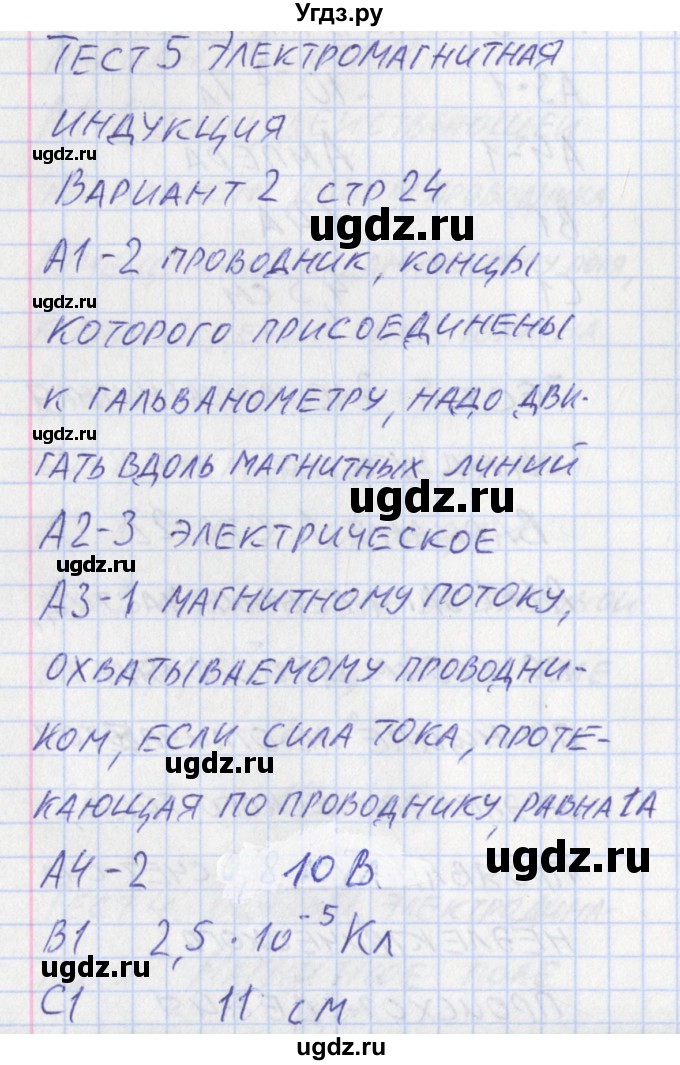 Угдз.ру
ТЕСТ 5 ЭЛЕКТРОМАГНИТНАЯ
ИНДУКЦИЯ
ugdz.ru
ВАРИАНТ 2 СТР 24
ugdz.ru
А1-2 ПРОВОДНИК, КОНЦЫ
ugdz.ru
КОТОРОГО ПРИСОЕДИНЕНЫ
К ГАЛЬВАНОМЕТРУ, НАДО ДВИ-
ugdz.ru
ГАТЬ ВДОЛЬ МАГНИТНЫХ ЛИНИЙ
ugdz.ru
А2-3 ЭЛЕКТРИЧЕСКОЕ
ugdz.ru
А3-1 МАГНИТНОМУ ПОТОКУ,
ОХВАТЫВАЕМОМУ ПРОВОДНИ-
КОМ, ЕСЛИ СИЛА ТОКА, ПРОТЕ-
ugdz.ru
КАЮЩАЯ ПО ПРОВОДНИКУ, РАВНА 1А
ugdz.ru
А4-2 10 В
В1 2,5 · 10⁻⁵ Кл
ugdz.ru
С1 11 СМ
ugdz.ru